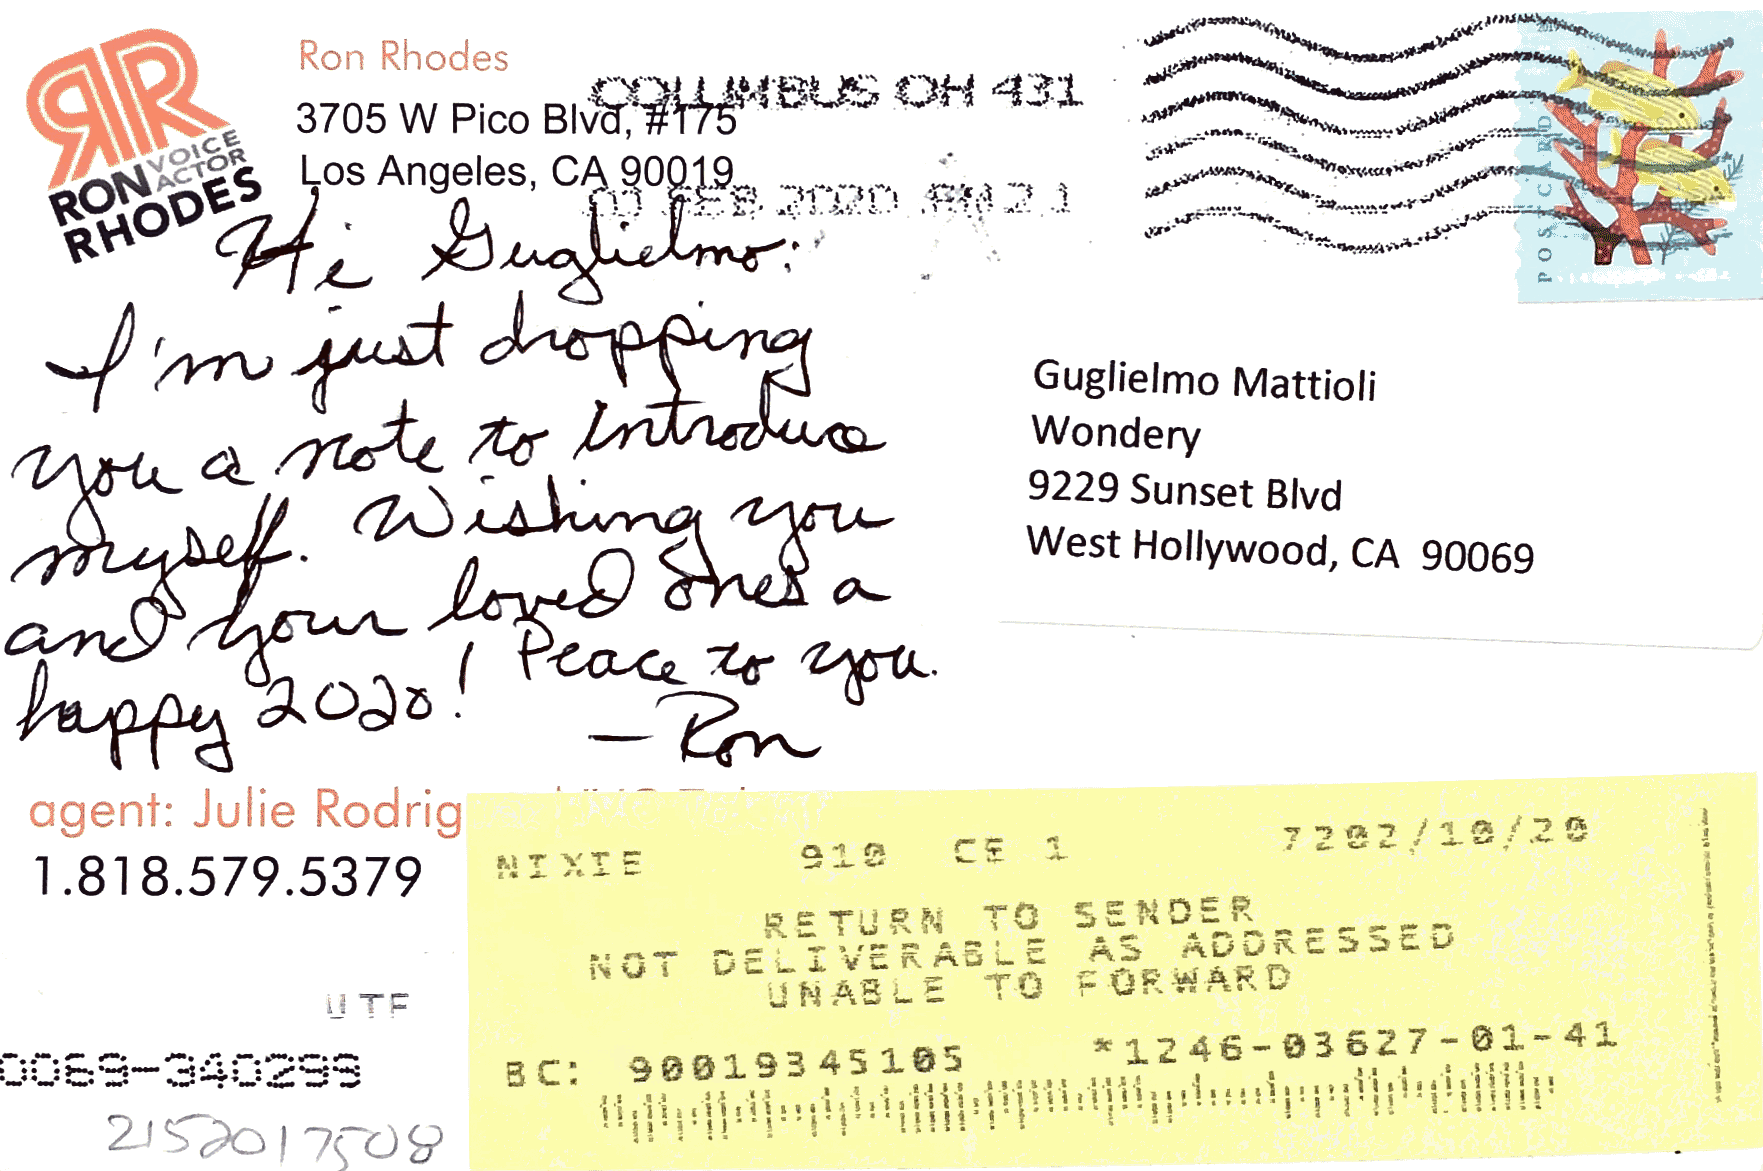 RON VOICE
ACTOR
RHODES
Ron Rhodes
3705 W Pico Blvd, #175
Los Angeles, CA 90019
COLUMBUS OH 431
FEB 2020 PM 2 1
2017
POSTCARD
Hi Guglielmo:
I'm just dropping
you a note to introduce
myself. Wishing you
and your loved ones a
happy 2020! Peace to you.
— Ron
Guglielmo Mattioli
Wondery
9229 Sunset Blvd
West Hollywood, CA 90069
agent: Julie Rodrig
1.818.579.5379
NIXIE 910 CE 1 7202/10/20
RETURN TO SENDER
NOT DELIVERABLE AS ADDRESSED
UNABLE TO FORWARD
BC: 90019345105 *1246-03627-01-41
UTF
0069-340299
2152017508